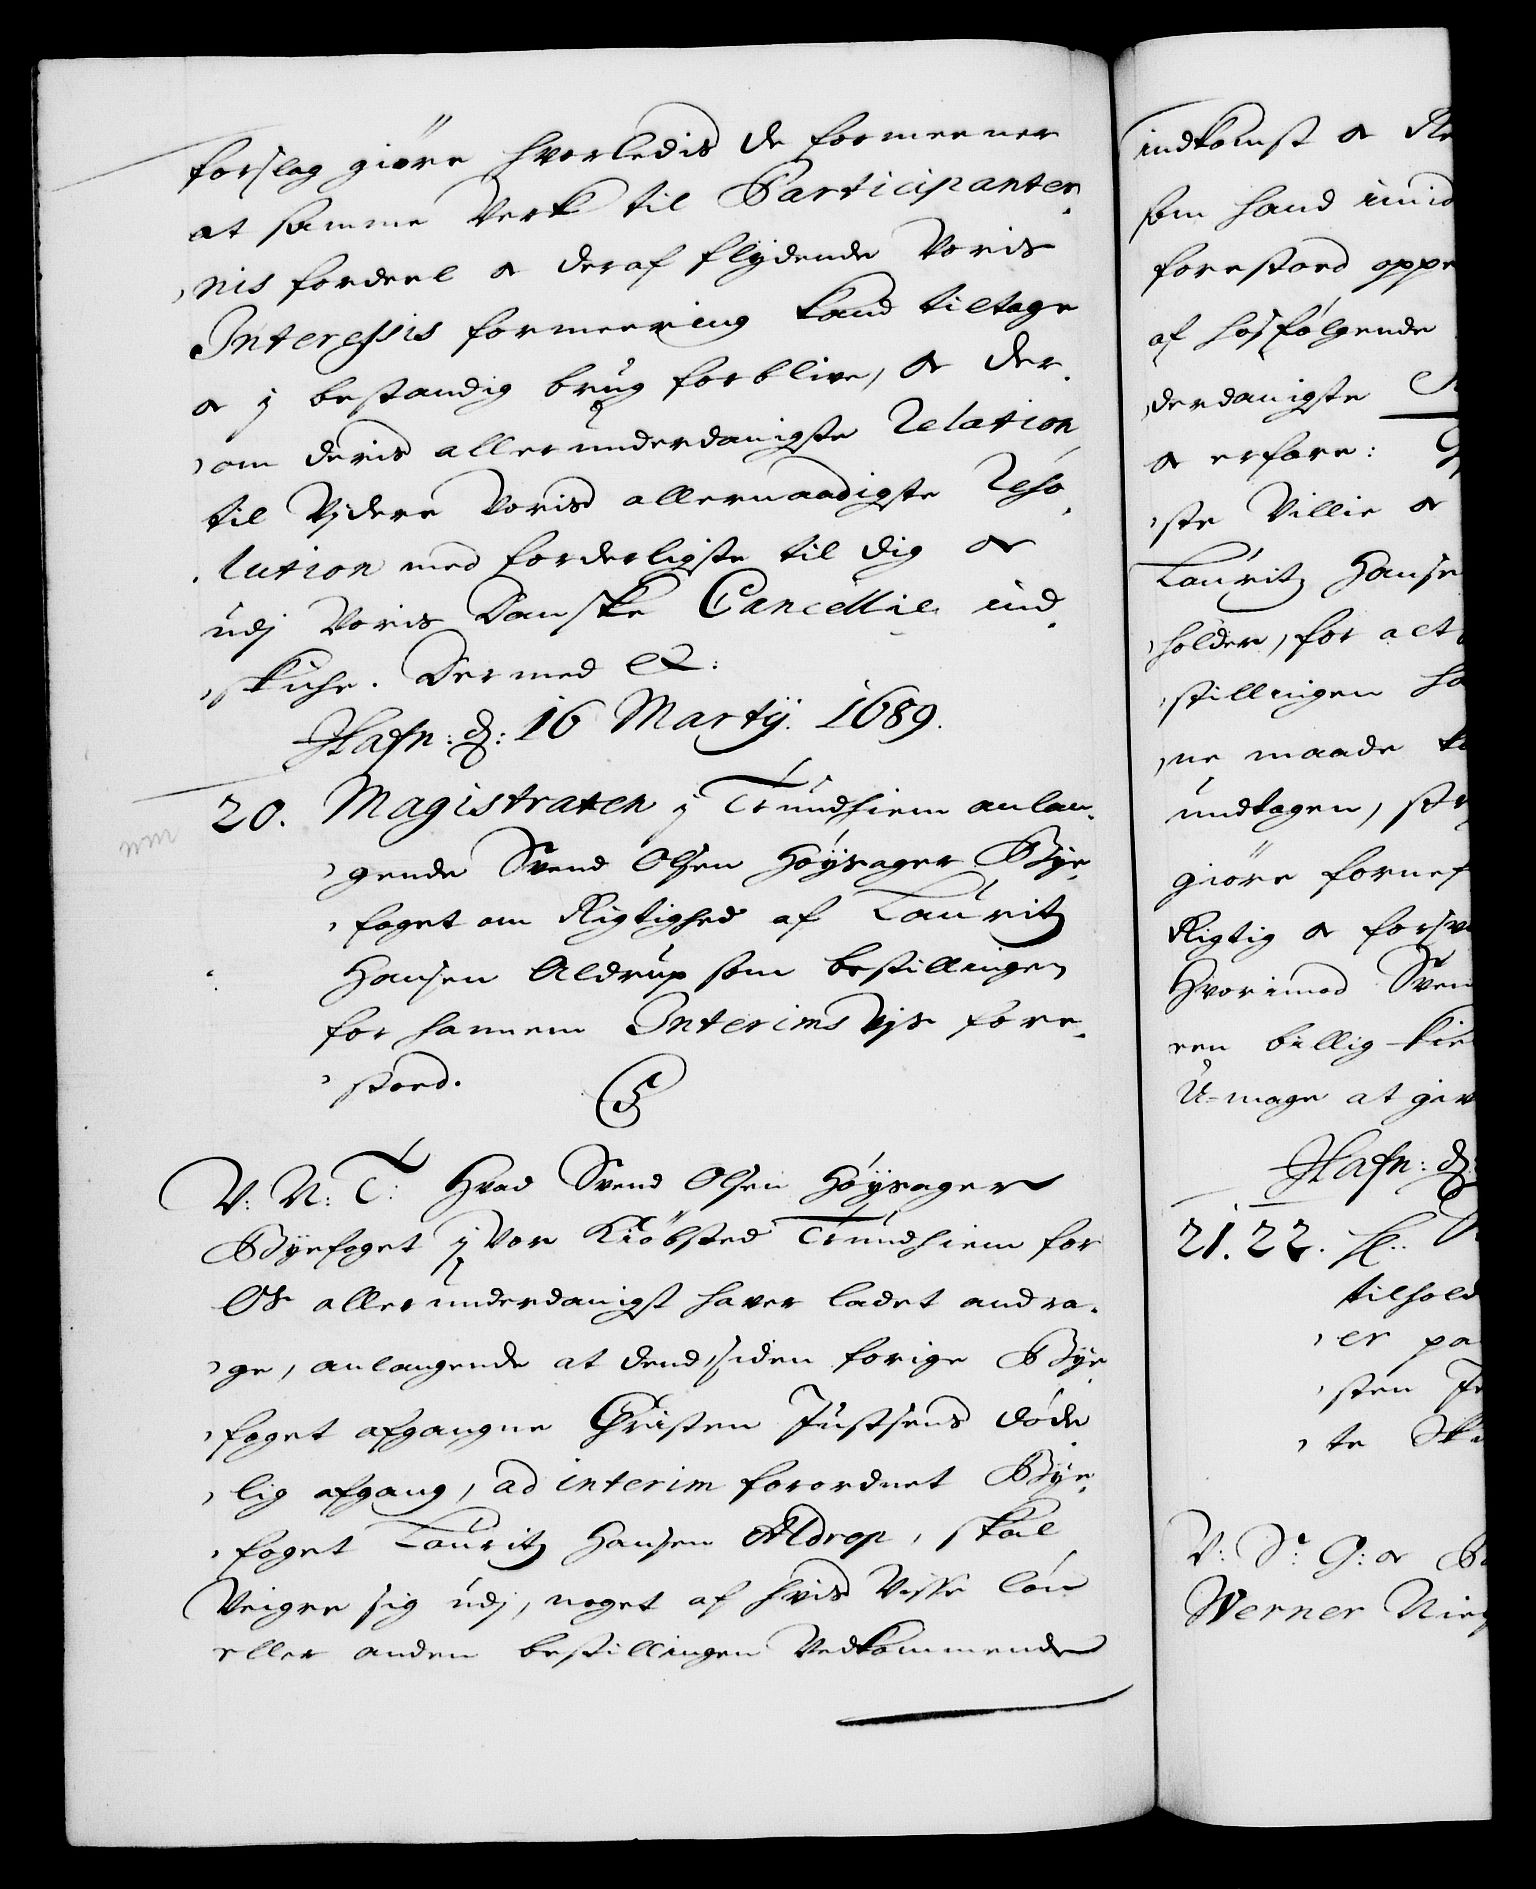 forslag giøre hvorledis de formeener
at samme Verk til Participanter¬
nis fordeel & deraf flydende Voris
Interessis formeering kand tiltage
& j bestandig brug forblive, & der¬
om deris allerunderdanigste Relation
til Vjdere Voris allernaadigste Reso¬
lution med forderligste til dig &
udj Voris Danske Cancellie ind¬
skiche. Dermed &:
Hafn: d: 16 Martij. 1689.
20. Magistraten j Trundhiem anlan¬
gende Svend Olsen Høysager Bye¬
foget om Rigtighed af Lauritz
Hansen Aldrup som bestillingen
for hannem Interims Vjs fore¬
stoed.
V: N: T: Hvad Svend Olsen Høysager
Byefoget j Vor Kiøbsted Trundhiem for
Os allerunderdanigst haver ladet andra¬
ge, anlangende at dend, siden forige Bye
foget afgangne Christen Justsens døde
lig afgang, ad interim forordnet Bye¬
foget Lauritz Hansen Aldrop, skal
Veigre sig udj, noget af hvis Visse løn
eller anden bestillingen Vedkommende
indkomst &
som hand imid
forestoed oppe
af hosfølgende
derdanigste
& erfare:
ste Villie &
Lauritz Hanse
holder, for alt
stillingen ha
ne maade
undtagen, str
giøre fornef
Rigtig & forsv
Hvorimod Sven
een billig kie
U-mage at giv
Hafn: d:
21. 22.
tilhold
er pa
sten
te
V: Sr: G: &
Werner Nie